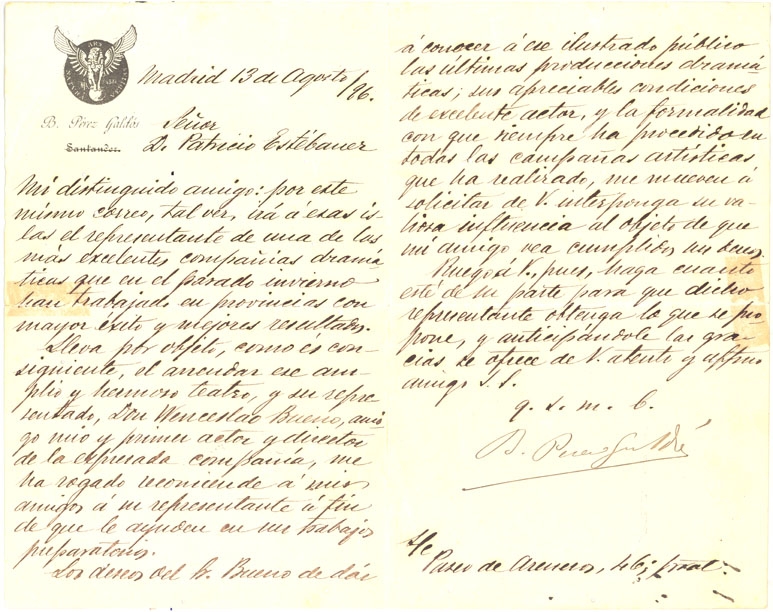 ARS
Madrid 13 de Agosto/96.
B. Pérez Galdós
Santander.
Señor
D. Patricio Estébanez
Mi distinguido amigo: por este
mismo correo, tal vez, irá á esas is-
las el representante de una de las
más excelentes compañías dramá-
ticas que en el pasado invierno
han trabajado en provincias con
mayor éxito y mejores resultados.
Lleva por objeto, como és con-
siguiente, el arrendar ese am-
plio y hermoso teatro, y su repre-
sentado, Don Wenceslao Bueno, ami-
go mio y primer actor y director
de la expresada compañía, me
ha rogado recomiende á mis
amigos á su representante á fin
de que le ayuden en sus trabajos
preparatorios.
Los deseos del Sr. Bueno de dár
á conocer á ese ilustrado público
las últimas producciones dramá-
ticas; sus apreciables condiciones
de excelente actor, y la formalidad
con que siempre ha procedido en
todas las campañas artísticas
que ha realizado, me mueven á
solicitar de V. interponga su va-
liosa influencia al objeto de que
mi amigo vea cumplidos sus deseos.
Ruego á V., pues, haga cuanto
esté de su parte para que dicho
representante obtenga lo que se pro-
pone, y anticipándole las gra-
cias se ofrece de V. atento y affmo
amigo S. S.
q. s. m. b.
B. Perez Galdós
S/c
Paseo de Areneros, 46, pral.